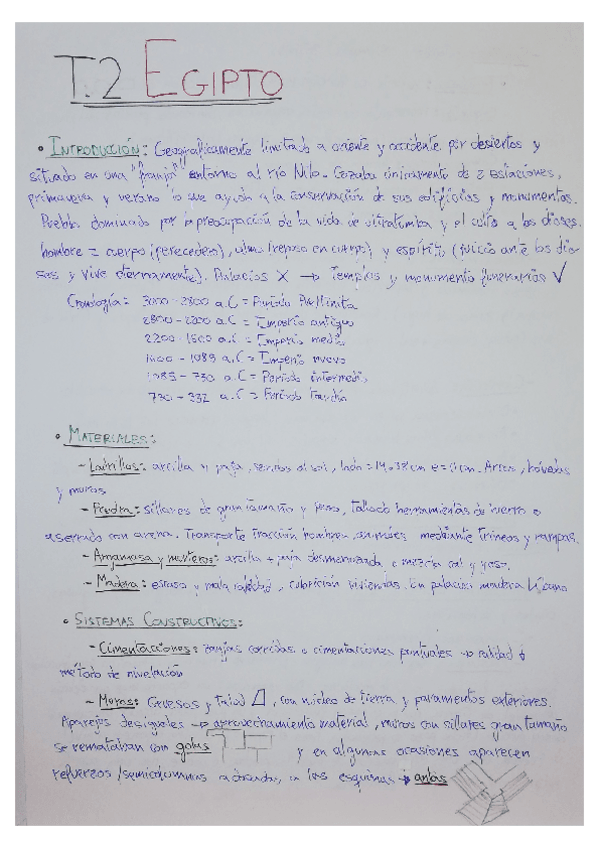 T.2 EGIPTO
• INTRODUCCIÓN: Geograficamente limitado a oriente y occidente por desiertos y
situado en una "franja" entorno al río Nilo. Gozaba únicamente de 2 estaciones,
primavera y verano lo que ayudó a la conservación de sus edificios y monumentos.
Pueblo dominado por la preocupación de la vida de ultratumba y el culto a los dioses.
hombre = cuerpo (perecedero), alma (reposo en cuerpo) y espíritu (juicio ante los dio-
ses y vive eternamente). Palacios X → Templos y monumento funerarios ✓
Cronología: 3000-2800 a.C = Período
2800-2200 a.C = Imperio antiguo
2200-1500 a.C = Imperio medio
a.C = Imperio nuevo
1085-730 a.C = Período intermedio
730-332 a.C = Período
• MATERIALES:
- Ladrillos: arcilla y paja, al sol, Arcos, bóvedas
y muros
- Piedra: sillares de gran tamaño y peso, tallado herramientas de hierro o
aserrado con arena. Transporte tracción hombres, animales mediante trineos y rampas.
- Argamasa y morteros: arcilla + paja desmenuzada o mezcla cal y yeso.
- Madera: escasa y mala calidad, cubrición viviendas. En palacios madera Líbano
• SISTEMAS CONSTRUCTIVOS:
- Cimentaciones: zanjas corridas o cimentaciones puntuales → calidad
método de nivelación
- Muros: Gruesos y talud, con núcleo de tierra y paramentos exteriores.
Aparejos desiguales → aprovechamiento material, muros con sillares gran tamaño
se remataban con golas y en algunas ocasiones aparecen
refuerzos/semicolumnas adosadas, en las esquinas → antas